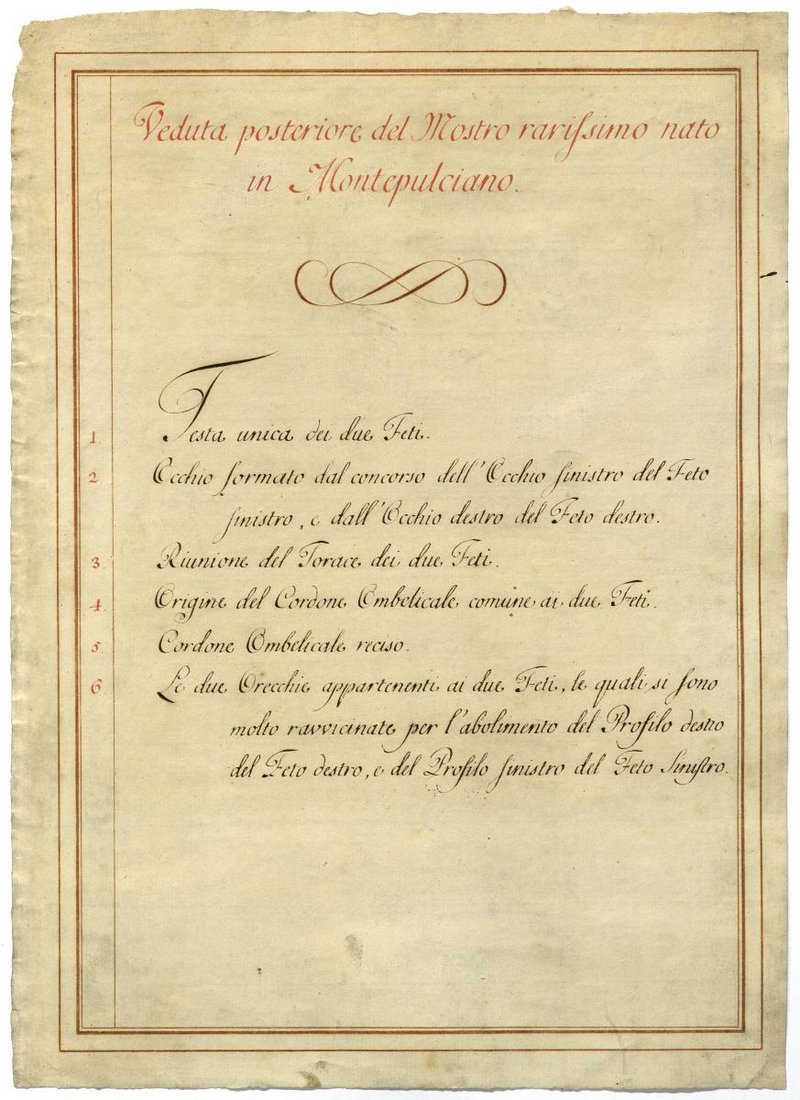 Veduta posteriore del Mostro rarissimo nato
in Montepulciano.
1 Testa unica dei due Feti.
2 Occhio formato dal concorso dell'Occhio sinistro del Feto
sinistro, e dall'Occhio destro del Feto destro.
3 Riunione del Torace dei due Feti.
4 Origine del Cordone Ombelicale comune ai due Feti.
5 Cordone Ombelicale reciso.
6 Le due Orecchie appartenenti ai due Feti, le quali si sono
molto ravvicinate per l'abolimento del Profilo destro
del Feto destro, e del Profilo sinistro del Feto Sinistro.